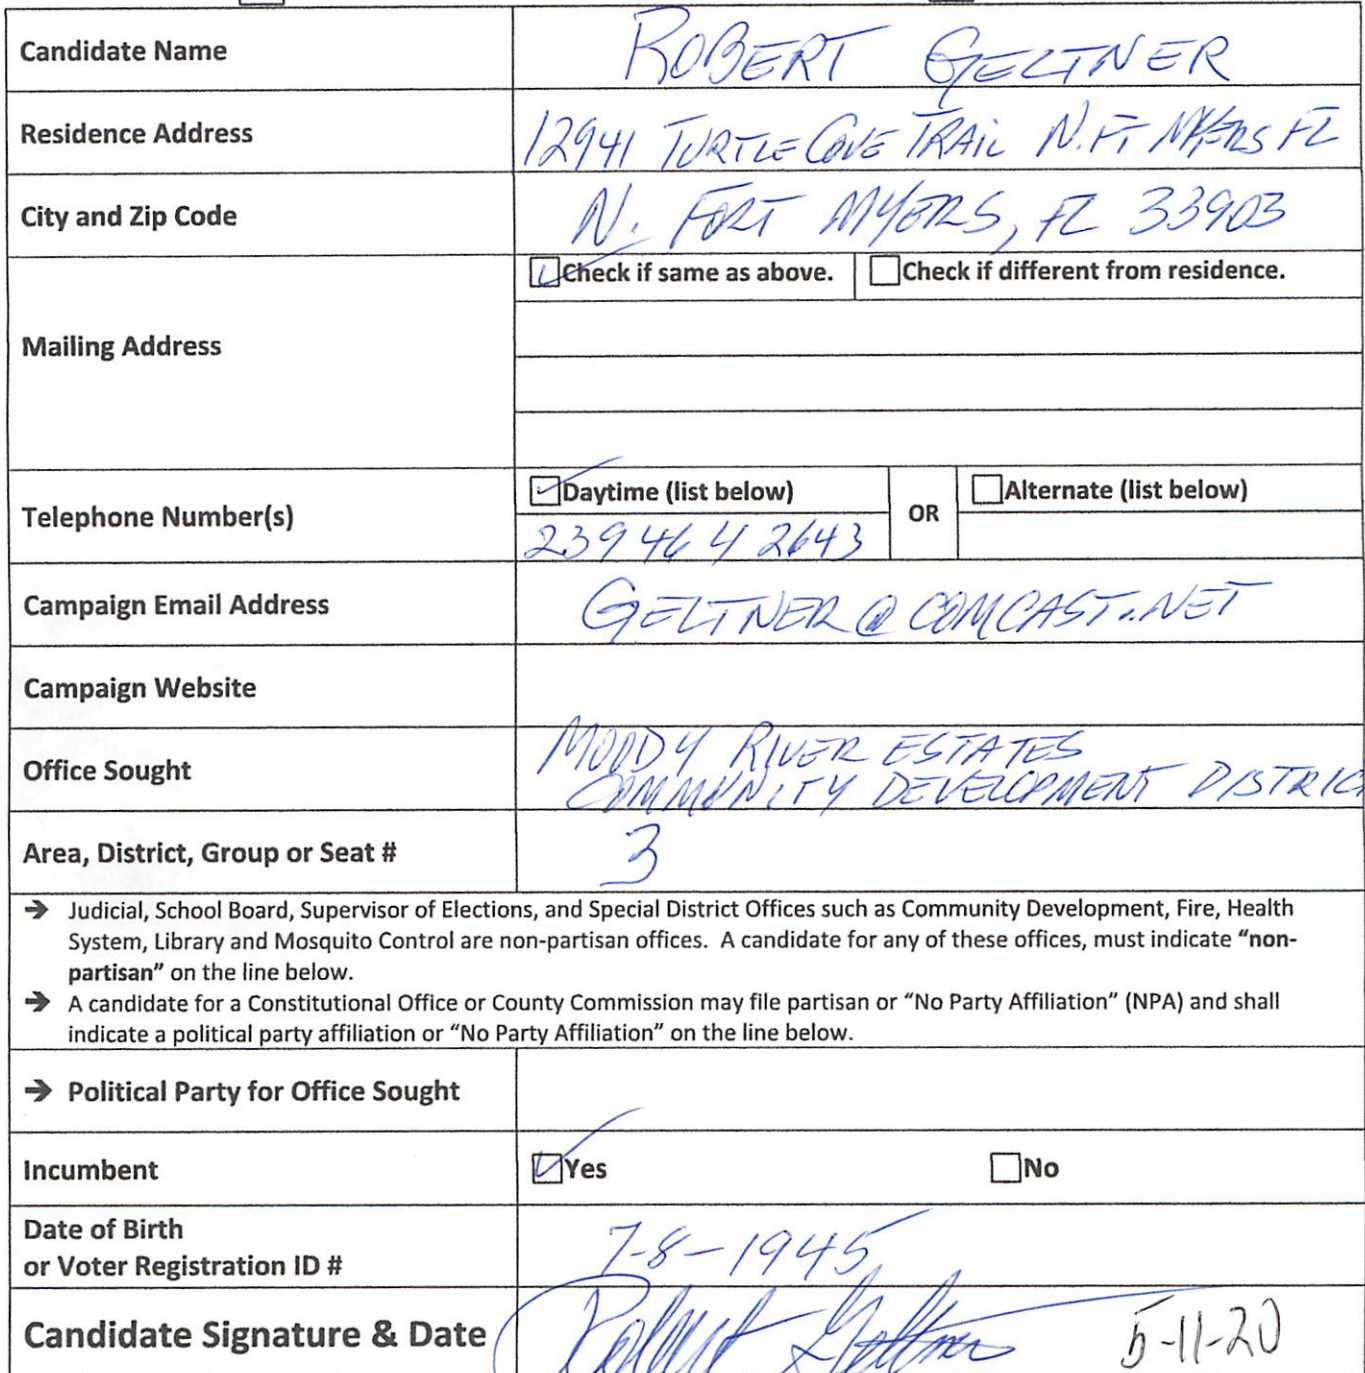 Candidate Name ROBERT GELTNER
Residence Address 12941 TURTLE COVE TRAIL N. FT MYERS FL
City and Zip Code N. FORT MYERS, FL 33903
Check if same as above. Check if different from residence.
Mailing Address
Daytime (list below) OR Alternate (list below)
Telephone Number(s) 239 464 2643
Campaign Email Address GELTNER@COMCAST.NET
Campaign Website
MOODY RIVER ESTATES
Office Sought COMMUNITY DEVELOPMENT DISTRIC
Area, District, Group or Seat # 3
→ Judicial, School Board, Supervisor of Elections, and Special District Offices such as Community Development, Fire, Health
System, Library and Mosquito Control are non-partisan offices. A candidate for any of these offices, must indicate "non-
partisan" on the line below.
→ A candidate for a Constitutional Office or County Commission may file partisan or "No Party Affiliation" (NPA) and shall
indicate a political party affiliation or "No Party Affiliation" on the line below.
→ Political Party for Office Sought
Incumbent Yes No
Date of Birth
or Voter Registration ID # 7-8-1945
Candidate Signature & Date Robert Geltner 5-11-20